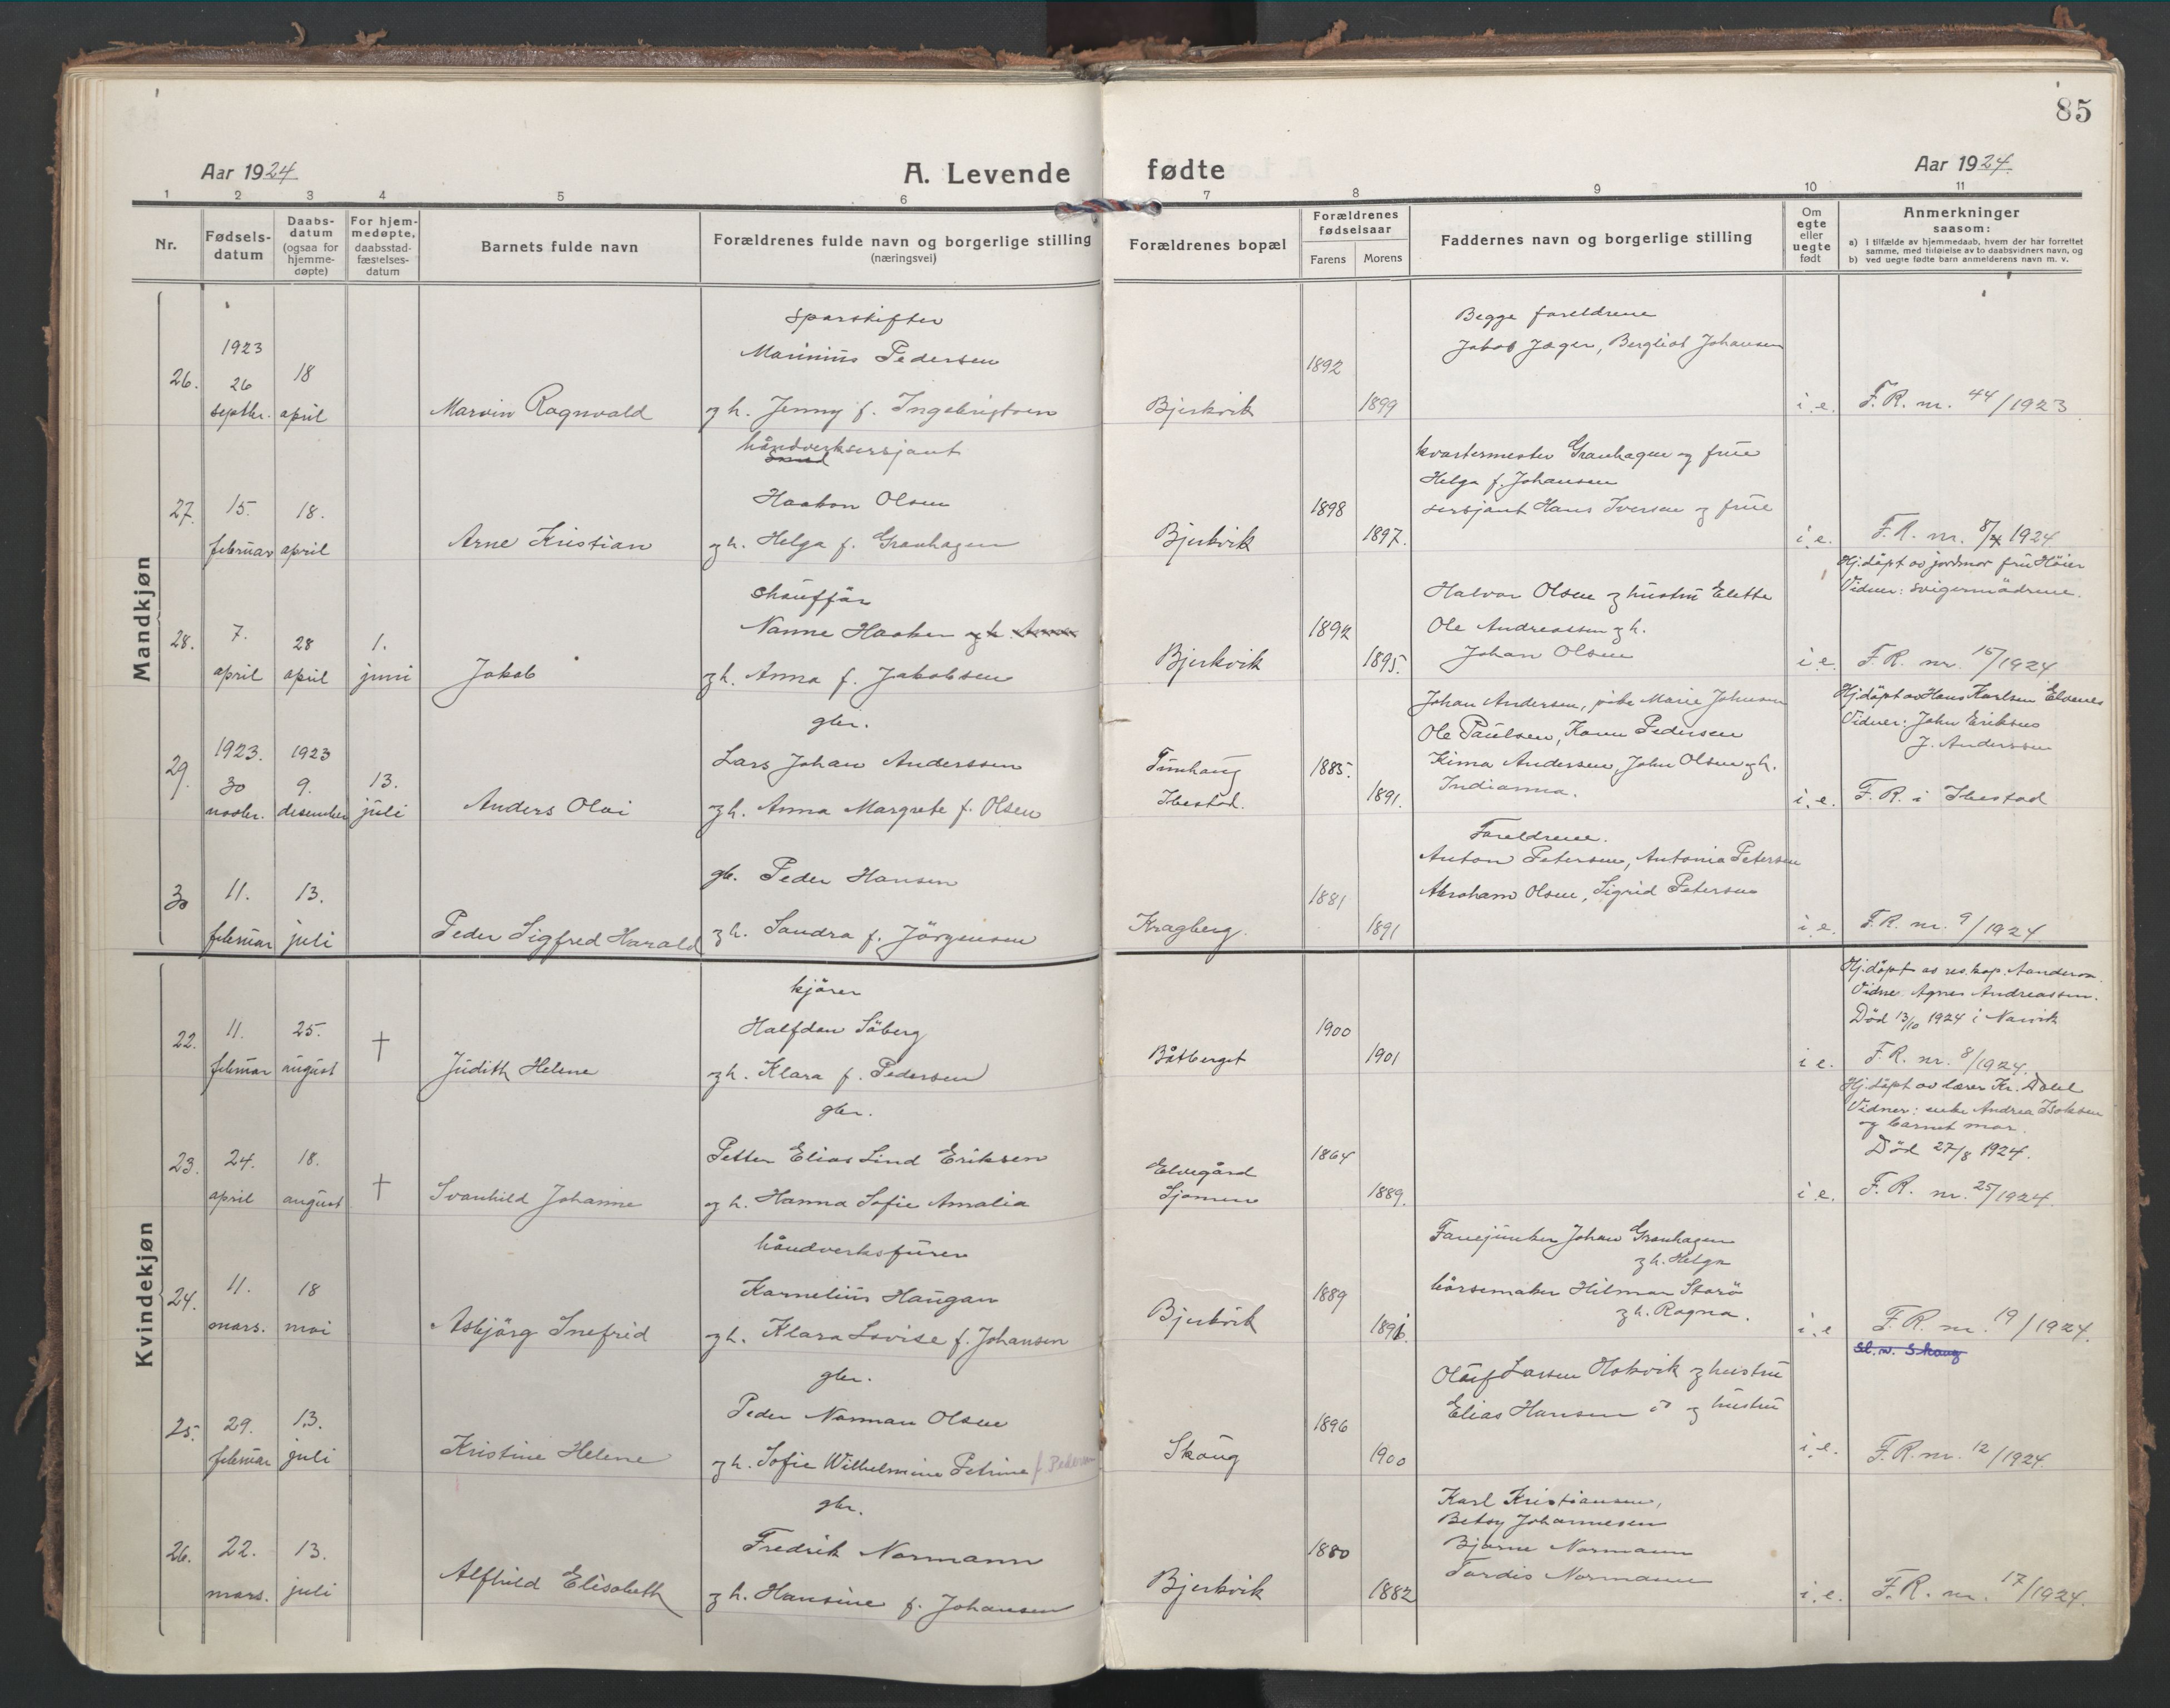 85
Aar 1924
A. Levende
fødte
Aar 1924.
1 2 3 4 5 6 7 8 9 10 11
Nr.
Fødsels-
datum
Daabs-
datum
(ogsaa for
hjemme-
døpte)
For hjem-
medøpte,
daabsstad-
fæstelses-
datum
Barnets fulde navn
Forældrenes fulde navn og borgerlige stilling
(næringsvei)
Forældrenes bopæl
Forældrenes
fødselsaar
Farens
Morens
Faddernes navn og borgerlige stilling
Om
egte
eller
uegte
født
Anmerkninger
saasom:
a) I tilfælde av hjemmedaab, hvem der har forrettet
samme, med tilføielse av to daabsvidners navn, og
b) ved uegte fødte barn anmelderens navn m. v.
Mandkjøn
26.
1923
26
septbr.
18
april
Marvin Ragnvald
sporskifter
Marinius Pedersen
og h. Jenny f. Ingebrigtsen
Bjerkvik
1892
1899
Begge foreldrene
Jakob Jæger, Bergliot Johansen
i. e.
F. R. nr. 44/1923
27.
15.
februar
18.
april
Arne Kristian
håndverksersjant
Smed
Haakon Olsen
og h. Helga f. Granhagen
Bjerkvik
1898
1897.
kvartermester Granhagen og frue
Helga f. Johansen
sersjant Hans Iversen og frue
i. e.
F. R. nr. 8/1924
28.
7.
april
28
april
1.
juni
Jakob
chauffør
Nanne Haaker og h.
og h. Anna f. Jakobsen
Bjerkvik
1892
1895.
Halvor Olsen og hustru Elette
Ole Andreassen og h.
Johan Olsen
i. e.
Hj.døpt av jordmor fru Höier
Vidner: svigermødrene.
F. R. nr. 15/1924
29.
1923.
30
novbr.
1923
9.
desember
13.
juli
Anders Olai
gbr.
Lars Johan Anderssen
og h. Anna Margrete f. Olsen
Ibestad.
1885.
1891.
Johan Andersen, pike Marie Johnsen
Ole Paulsen, Karen Pedersen
Kima Andersen, John Olsen og h.
Indianna.
i. e.
Hj.døpt av Hans Karlsen Elvenes
Vidner: John Eriksen
J. Anderssen
F. R. i Ibestad
30
11.
februar
13.
juli
Peder Sigfred Harald
gbr. Peder Hansen
og h. Sandra f. Jörgensen
Kragberg.
1881
1891
Foreldrene.
Anton Petersen, Antonia Petersen
Abraham Olsen, Sigrid Petersen
i. e.
F. R. nr. 9/1924.
Kvindekjøn
22.
11.
februar
25.
august
†
Judith Helene
kjører
Halfdan Söberg
og h. Klara f. Pedersen
Båtberget
1900
1901
i e.
Hj.døpt av res. kap. Aanderaa.
Vidne Agnes Andreassen.
Död 13/10 1924 i Narvik
F. R. nr. 8/1924.
23.
24.
april
18.
august
†
Svanhild Johanne
gbr.
Petter Elias Lind Eriksen
og h. Hanna Sofie Amalia
Elvegård
Sjomen
1864
1889.
i. e.
Hj.døpt av lærer Kr. Dahl
Vidner: enke Andrea Isaksen
og barnets mor.
Död 27/8 1924.
F. R. nr. 25/1924.
24.
11.
mars.
18
mai
Asbjörg Snefrid
håndverksfurer
Kornelius Haugan
og h. Klara Lovise f. Johansen
Bjerkvik
1889
1896.
Fanejunker Johan Granhagen
og h. Helga
börsemaker Hilmar Storö
og h. Ragna.
i. e
F. R. nr. 19/1924.
Sl. nr. Skoug
25.
29.
februar
13.
juli
Kristine Helene
gbr.
Peder Norman Olsen
og h. Sofie Wilhelmine Petrine f. Pedersen
Skoug
1896
1900
Oluf Larsen Olskvik og hustru
Elias Hansen do og hustru
i. e.
F. R. nr. 12/1924.
26.
22.
mars.
13.
juli
Alfhild Elisabeth
gbr.
Fredrik Normann
og h. Hansine f. Johansen
Bjerkvik
1880
1882
Karl Kristiansen,
Betsy Johannesen
Bjarne Normann
Tordis Normann
i. e.
F. R. nr. 17/1924.